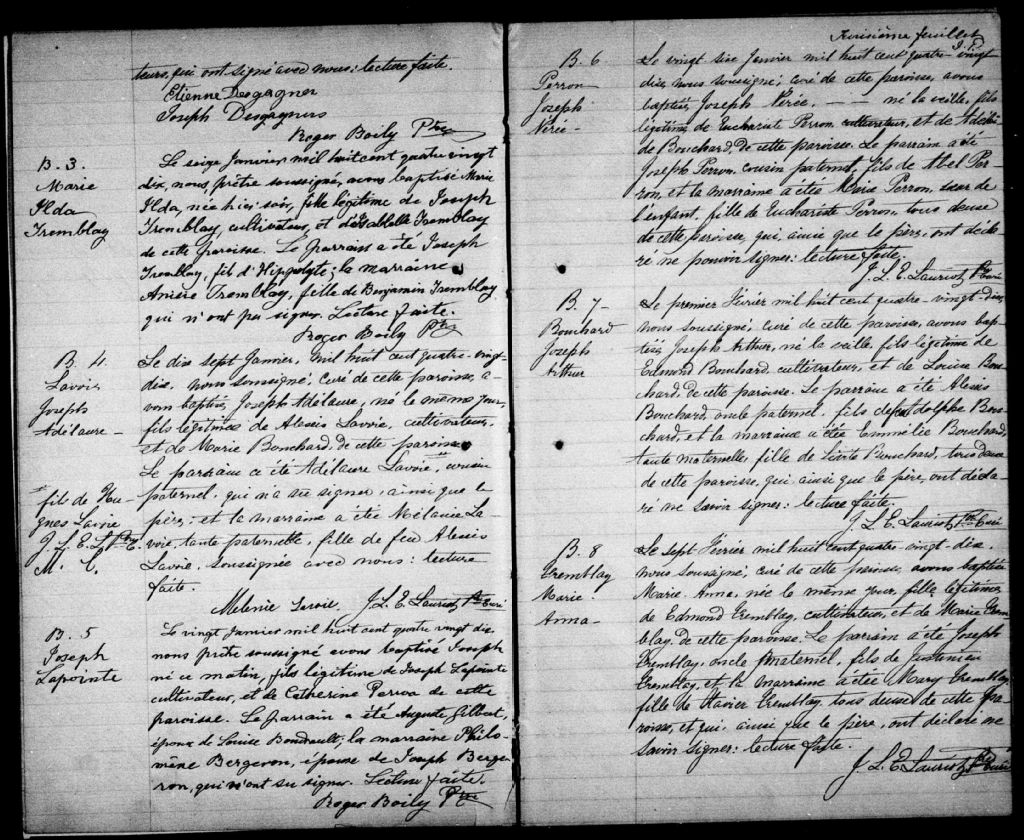 teurs, qui ont signé avec nous: lecture faite.
Etienne Desgagner
Joseph Desgagners
Roger Boily Ptre
B. 3.
Marie
Ilda
Tremblay
Le seize Janvier mil huit cent quatre vingt
dix, nous, prêtre soussigné, avons baptisé Marie
Ilda, née hier soir, fille légitime de Joseph
Tremblay, cultivateur, et d'Isabelle Tremblay
de cette paroisse. Le parrain a été Joseph
Tremblay, fils d'Hippolyte; la marraine
Tremblay, fille de Benjamin Tremblay
qui n'ont pu signer. Lecture faite.
Roger Boily Ptre
B. 4.
Lavoie
Joseph
Adélaure
Le dix sept Janvier, mil huit cent quatre-vingt-
dix, nous soussigné, curé de cette paroisse, a-
vons baptisé, Joseph Adélaure, né le même jour,
fils légitime de Alexis Lavoie, cultivateur,
et de Marie Bouchard, de cette paroisse.
Le parrain a été Adélaure Lavoie, cousin
paternel, qui n'a su signer, ainsi que le
père; et la marraine a été Mélanie La-
voie, tante paternelle, fille de feu Alexis
Lavoie, soussignée avec nous: lecture
faite.
fils de Hu-
gues Lavoie
J. L. E. L. Ptre C.
M. C.
Melenie Lavoie. J. L. E. Lauriot Ptre Curé
B. 5
Joseph
Lapointe
Le vingt Janvier mil huit cent quatre vingt dix
nous prêtre soussigné avons baptisé Joseph
né ce matin, fils légitime de Joseph Lapointe
cultivateur, et de Catherine Perron de cette
paroisse. Le parrain a été Auguste Gilbert,
époux de Louise Boudreault; la marraine Philo-
mène Bergeron, épouse de Joseph Berge-
ron, qui n'ont su signer. Lecture faite.
Roger Boily Ptre
Troisième feuillet
B. 6
Perron
Joseph
Nérée
Le vingt six Janvier mil huit cent quatre vingt
dix, nous soussigné, curé de cette paroisse, avons
baptisé Joseph Nérée, — — né la veille, fils
légitime de Euchariste Perron, cultivateur, et de
de Bouchard, de cette paroisse. Le parrain a été
Joseph Perron, cousin paternel, fils de Abel Per-
ron, et la marraine a été Marie Perron, sœur de
l'enfant, fille de Euchariste Perron, tous deux
de cette paroisse, qui, ainsi que le père, ont décla-
ré ne pouvoir signer: lecture faite.
J. L. E. Lauriot Ptre Curé
B. 7
Bouchard
Joseph
Arthur
Le premier Février mil huit cent quatre-vingt-dix,
nous soussigné, curé de cette paroisse, avons bap-
tisé, Joseph Arthur, né la veille fils légitime de
Edmond Bouchard cultivateur, et de Louise Bou-
chard, de cette paroisse. Le parrain a été Alexis
Bouchard, oncle paternel, fils Adolphe Bou-
chard, et la marraine a été Emmélie Bouchard,
tante maternelle, fille de Bouchard, tous deux
de cette paroisse, qui, ainsi que le père, ont décla-
ré ne savoir signer: lecture faite.
J. L. E. Lauriot Ptre Curé
B. 8
Tremblay
Marie
Anna
Le sept Février mil huit cent quatre-vingt-dix,
nous soussigné, curé de cette paroisse, avons baptisé
Marie Anna, née le même jour, fille légitime
de Edmond Tremblay, cultivateur, et de Marie Trem-
blay, de cette paroisse. Le parrain a été Joseph
Tremblay, oncle maternel, fils de Justinien
Tremblay, et la marraine a été Mary Tremblay,
fille de Xavier Tremblay, tous deux de cette pa-
roisse, et qui, ainsi que le père, ont déclaré ne
savoir signer: lecture faite.
J. L. E. Lauriot Ptre Curé